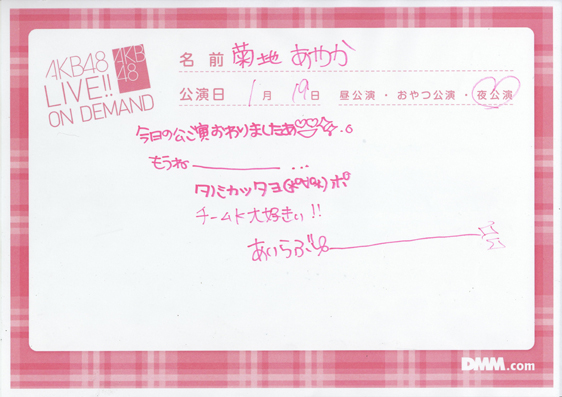 AKB48
LIVE!!
ON DEMAND
AKB
48
名前 菊地 あやか
公演日 1月 19日 昼公演・おやつ公演・夜公演
今日の公演おわりましたぁ
もうね――― ...
タノミカッタヨ ポ
チームK大好きぃ!!
あいらぶ
DMM.com